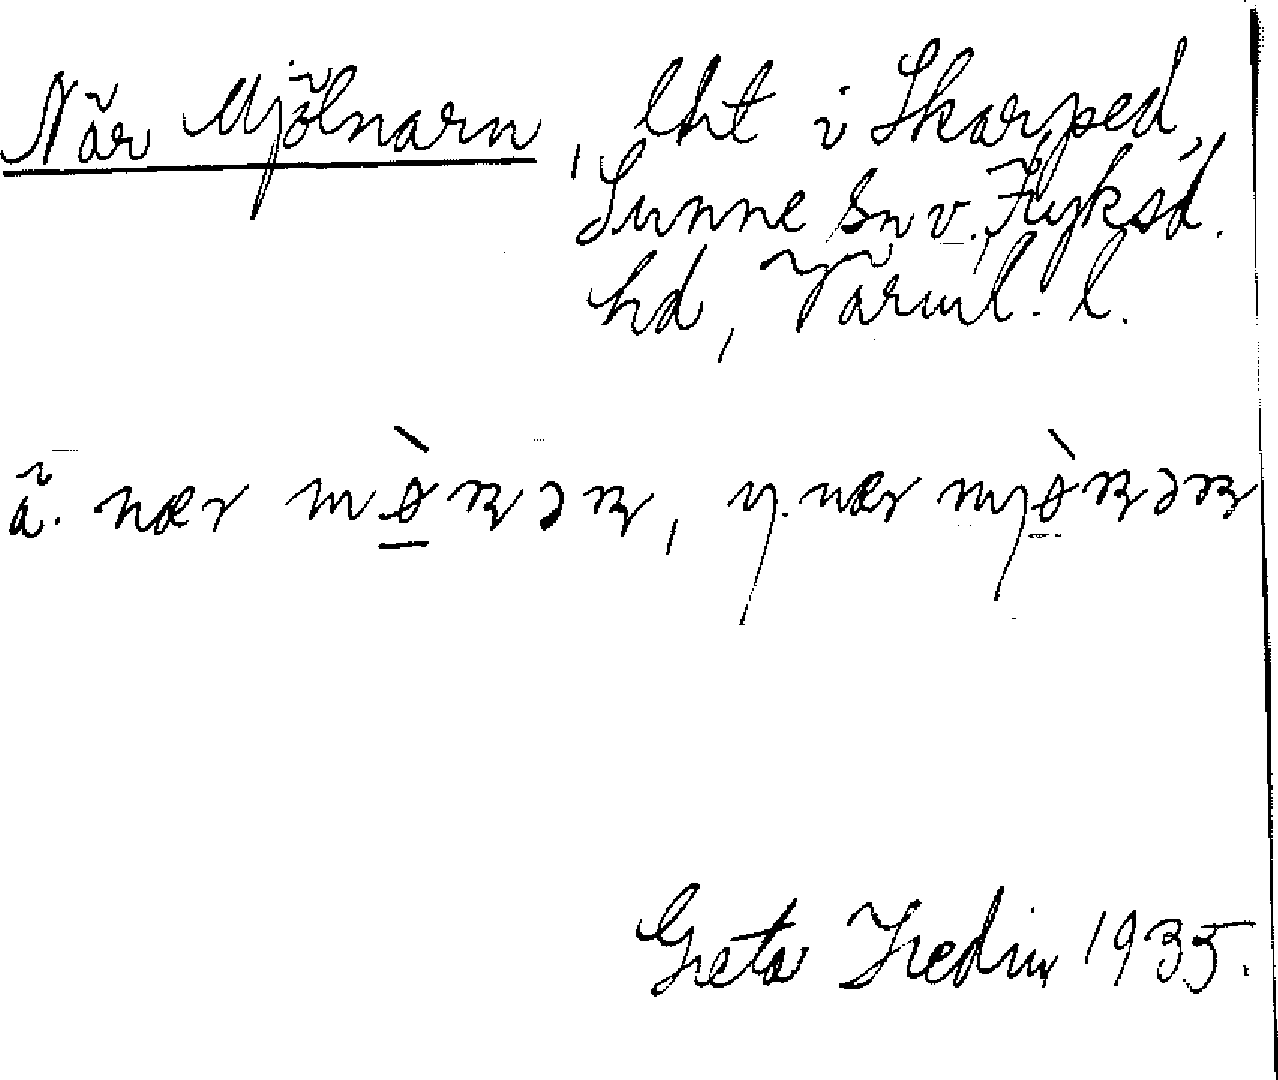 När Mjölnarn, lht i Skarped,
Sunne sn v. Fryksd.
hd, Värml. l.
ä. nær
y. nær
Greta Hedin 1935.